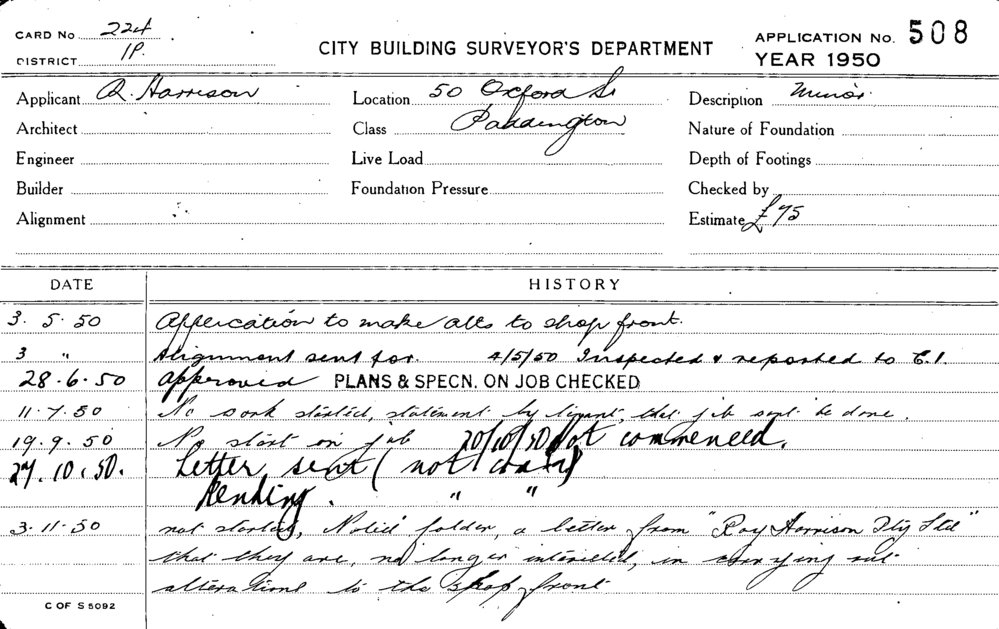 CARD No 224
DISTRICT 1P.
CITY BUILDING SURVEYOR'S DEPARTMENT
APPLICATION No. 508
YEAR 1950
Applicant R. Harrison
Location 50 Oxford St
Description Minor.
Architect
Class Paddington
Nature of Foundation
Engineer
Live Load
Depth of Footings
Builder
Foundation Pressure
Checked by
Alignment
Estimate £75
DATE HISTORY
3. 5. 50 Application to make alts to shop front.
3 " Alignment sent for. 4/5/50 Inspected & reported to C.I.
28.6.50 Approved PLANS & SPECN. ON JOB CHECKED
11.7.50 No work started, statement by tenant, that job be done.
19.9.50 No start on job 20/10/50 Not commenced.
27.10.50. Letter sent (not
Pending. " "
3.11.50 not started, Noted folder, a letter from "Roy Harrison Pty Ltd"
that they are, no longer interested, in carrying out
alterations to the shop front
C OF S 5092